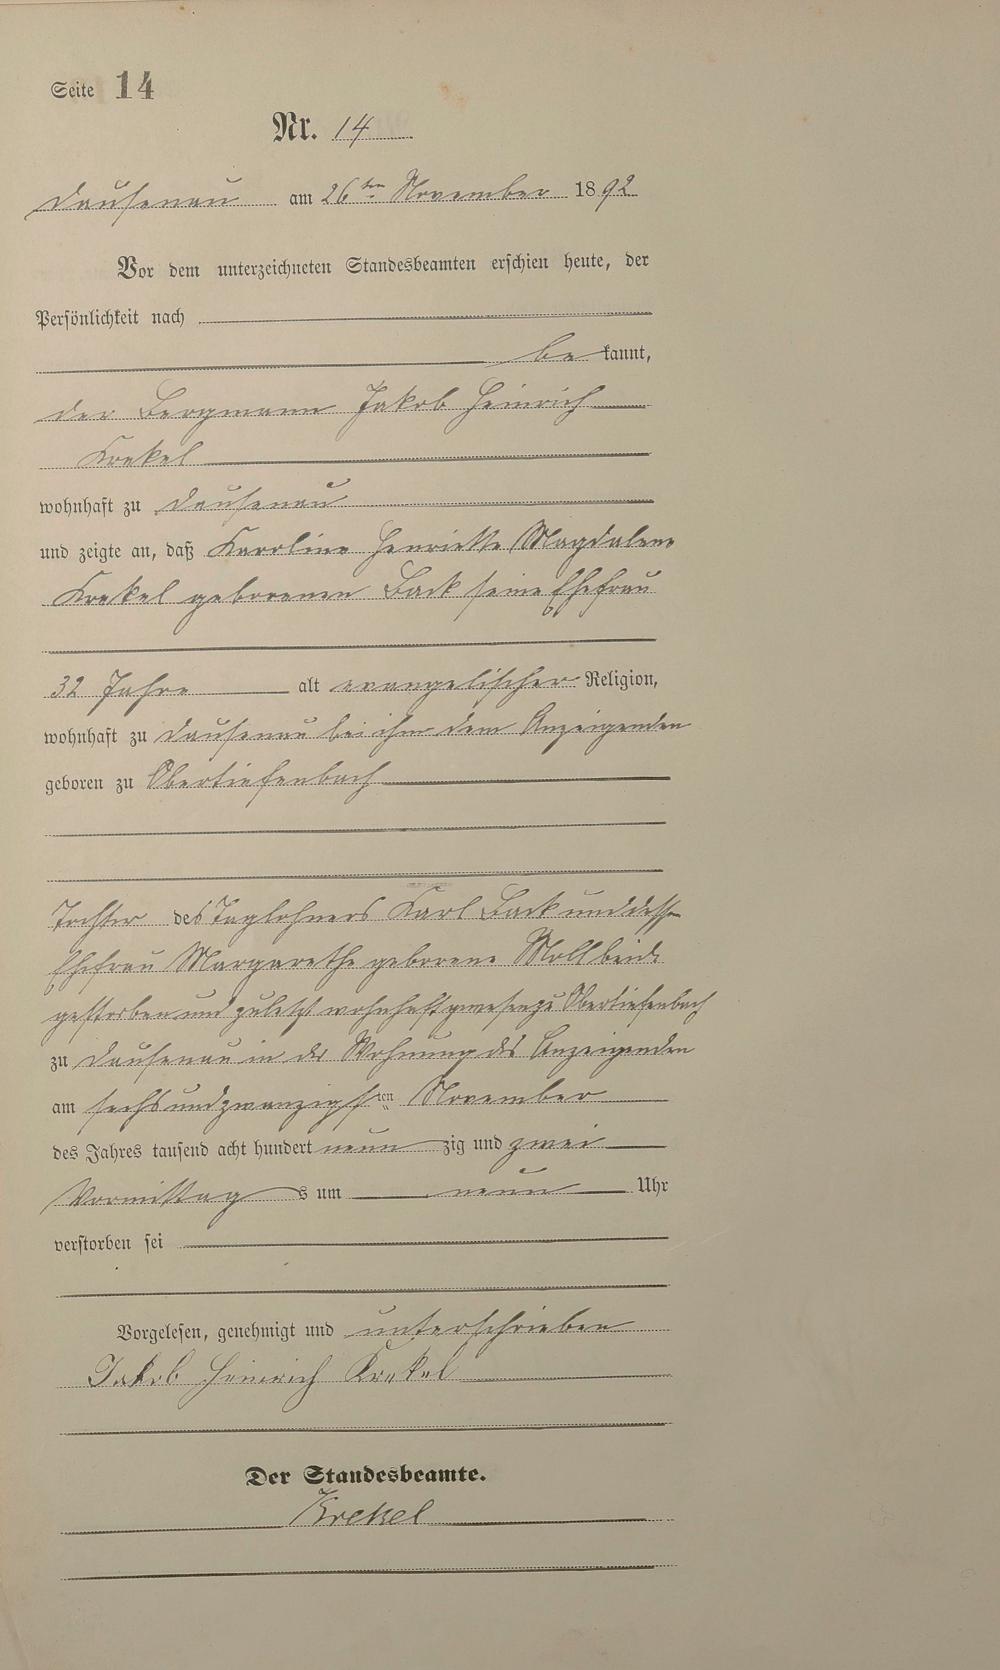 Seite 14
Nr. 14
Dausenau am 26ten November 1892
Vor dem unterzeichneten Standesbeamten erschien heute, der
Persönlichkeit nach
be kannt,
der Bergmann Jakob Heinrich
Krekel
wohnhaft zu Dausenau
und zeigte an, daß Karoline Henriette Magdalene
Krekel geborenen Back seine Ehefrau
32 Jahre alt evangelischer Religion,
wohnhaft zu Dausenau bei ihm dem Anzeigenden
geboren zu Obertiefenbach
Tochter des Taglöhners Karl Back und dessen
Ehefrau Margarethe geborene Moll beide
gestorben und zuletzt wohnhaft gewesen zu Obertiefenbach
zu Dausenau in der Wohnung des Anzeigenden
am sechsundzwanzigsten November
des Jahres tausend acht hundert neun zig und zwei
Vormittag s um neun Uhr
verstorben sei
Vorgelesen, genehmigt und unterschrieben
Jakob Heinrich Krekel
Der Standesbeamte.
Krekel